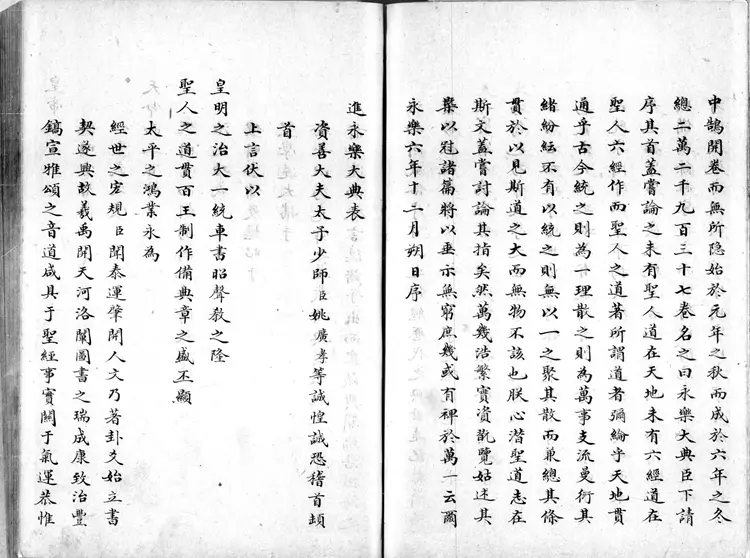 中鵠開卷而無所隐始於元年之秋而成於六年之冬
總二萬二千九百三十七卷名之曰永樂大典臣下請
序其首蓋嘗論之未有聖人道在天地未有六經道在
聖人六經作而聖人之道著所謂道者彌綸乎天地貫
通乎古今統之則為一理散之則為萬事支流曼衍其
緒紛紜不有以統之則無以一之聚其散而兼總其條
貫於以見斯道之大而無物不該也朕心潜聖道志在
斯文蓋嘗討論其指矣然萬幾浩繁實資翫覽姑述其
槩以冠諸篇將以垂示無窮庶幾或有裨於萬一云爾
永樂六年十二月朔日序
進永樂大典表
資善大夫太子少師臣姚廣孝等誠惶誠恐稽首頓
首
上言伏以
皇明之治大一統車書昭聲教之隆
聖人之道貫百王制作備典章之盛丕顯
太平之鴻業永為
經世之宏規臣聞泰運肇開人文乃著卦爻始立書
契遂興故羲禹開天河洛闡圖書之瑞成康致治豐
鎬宣雅頌之音道咸具于聖經事實關于氣運恭惟